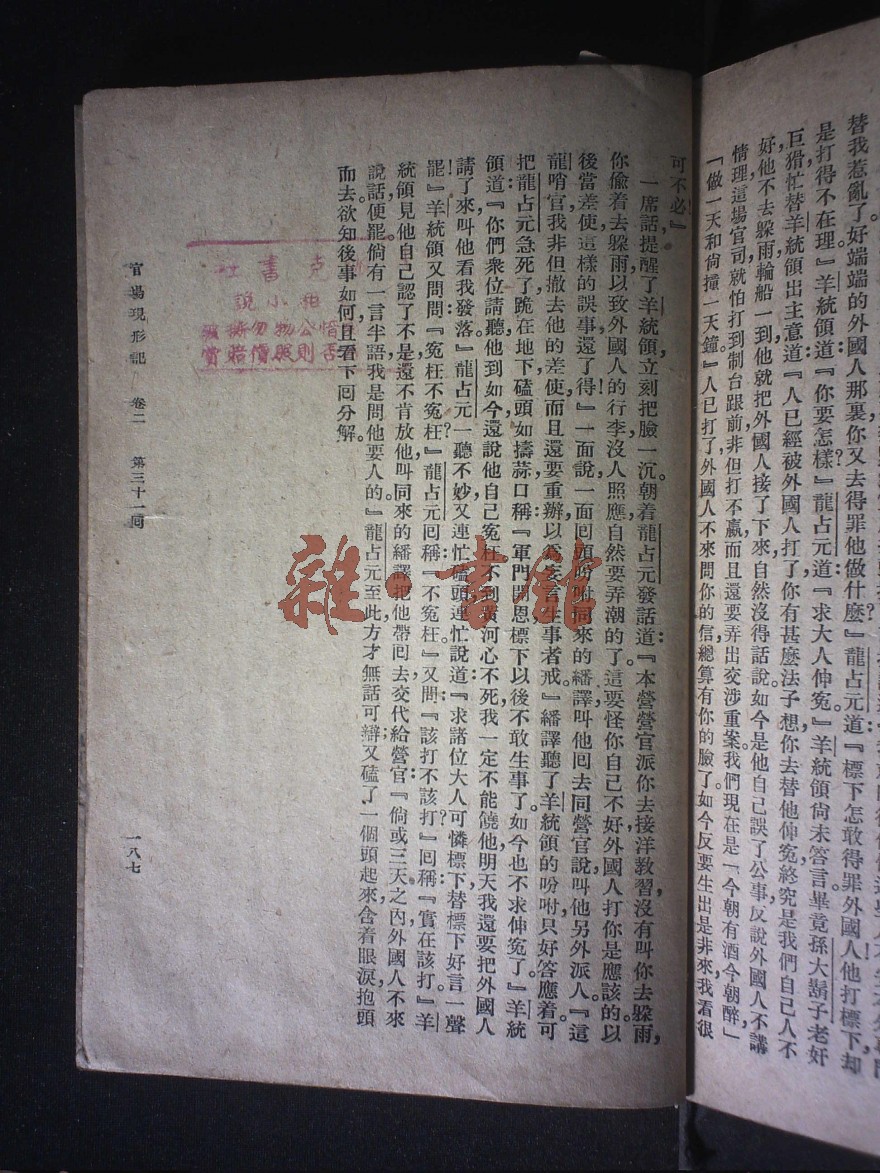 替我惹亂了好端端的外國人那裏你又去得罪他做什麼』龍占元道『標下怎敢得罪外國人他打標下却
是打得不在理』羊統領道『你要怎樣』龍占元道『求大人伸冤』羊統領尙未答言畢竟孫大鬍子老奸
巨猾忙替羊統領出主意道『人已經被外國人打了你有甚麽法子想你去替他伸冤終究是我們自己人不
好他不去躱雨輪船一到他就把外國人接了下來自然沒得話說如今是他自己誤了公事反說外國人不講
情理這場官司就怕打到制台跟前非但打不贏而且還要弄出交涉重案我們現在是「今朝有酒今朝醉」
「做一天和尙撞一天鐘」人已打了外國人不來問你的信總算有你的臉了如今反要生出是非來我看很
可不必』
一席話提醒了羊統領立刻把臉一沉朝着龍占元發話道『本營營官派你去接洋教習沒有叫你去躱雨
你偸着去躱雨以致外國人的行李沒人照應自然要弄潮的了這要怪你自己不好外國人打你是應該的以
後當差使這樣的誤事還了得』一面說一面囘頭吩咐同來的繙譯叫他囘去同營官說叫他另外派人『這
龍哨官我非但撤去他的差使而且還要重辦以爲妄言生事者戒』繙譯聽了羊統領的吩咐只好答應着可
把龍占元急死了跪在地下磕頭如擣蒜口稱『軍門開恩標下以後不敢生事了如今也不求伸冤了』羊統
領道『你們衆位請聽他到如今還說他自己冤枉不到黃河心不死我一定不能饒他明天我還要把外國人
請了來叫他看我發落』龍占元一聽不妙又連忙磕頭連忙說道『求諸位大人可憐標下替標下好言一聲
罷』羊統領又問『冤枉不冤枉』龍占元囘稱『不冤枉』又問『該打不該打』囘稱『實在該打』羊
統領見他自己認了不是還不肯放他叫同來的繙譯把他帶囘去交代給營官『倘或三天之內外國人不來
說話便罷倘有一言半語我是問他要人的』龍占元至此方才無話可辯又磕了一個頭起來含着眼淚抱頭
而去欲知後事如何且看下囘分解
官場現形記 卷二 第三十一囘
一八七
克書社
租小說
惜公物勿撕毀
否則照價賠償
雜·書館